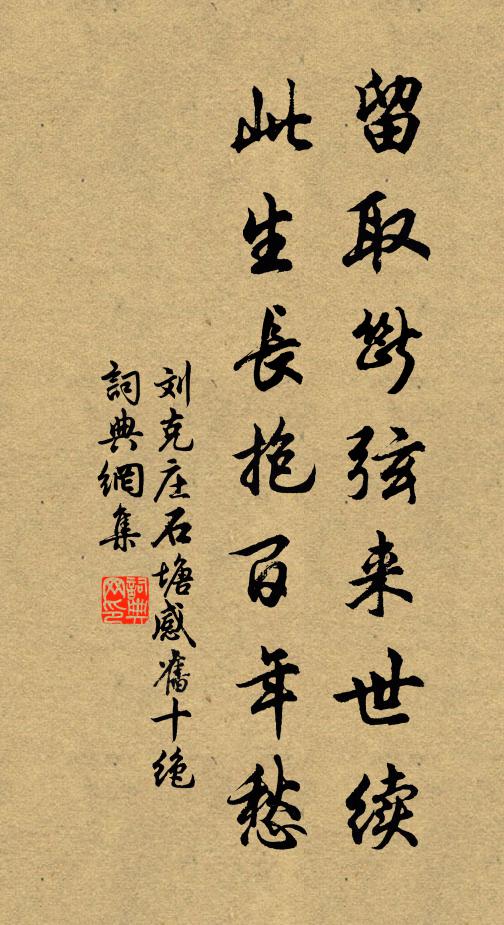 留取斷弦来世续
此生長抱百年愁
刘克庄石塘感舊十绝
詞典網集
詞典
网印